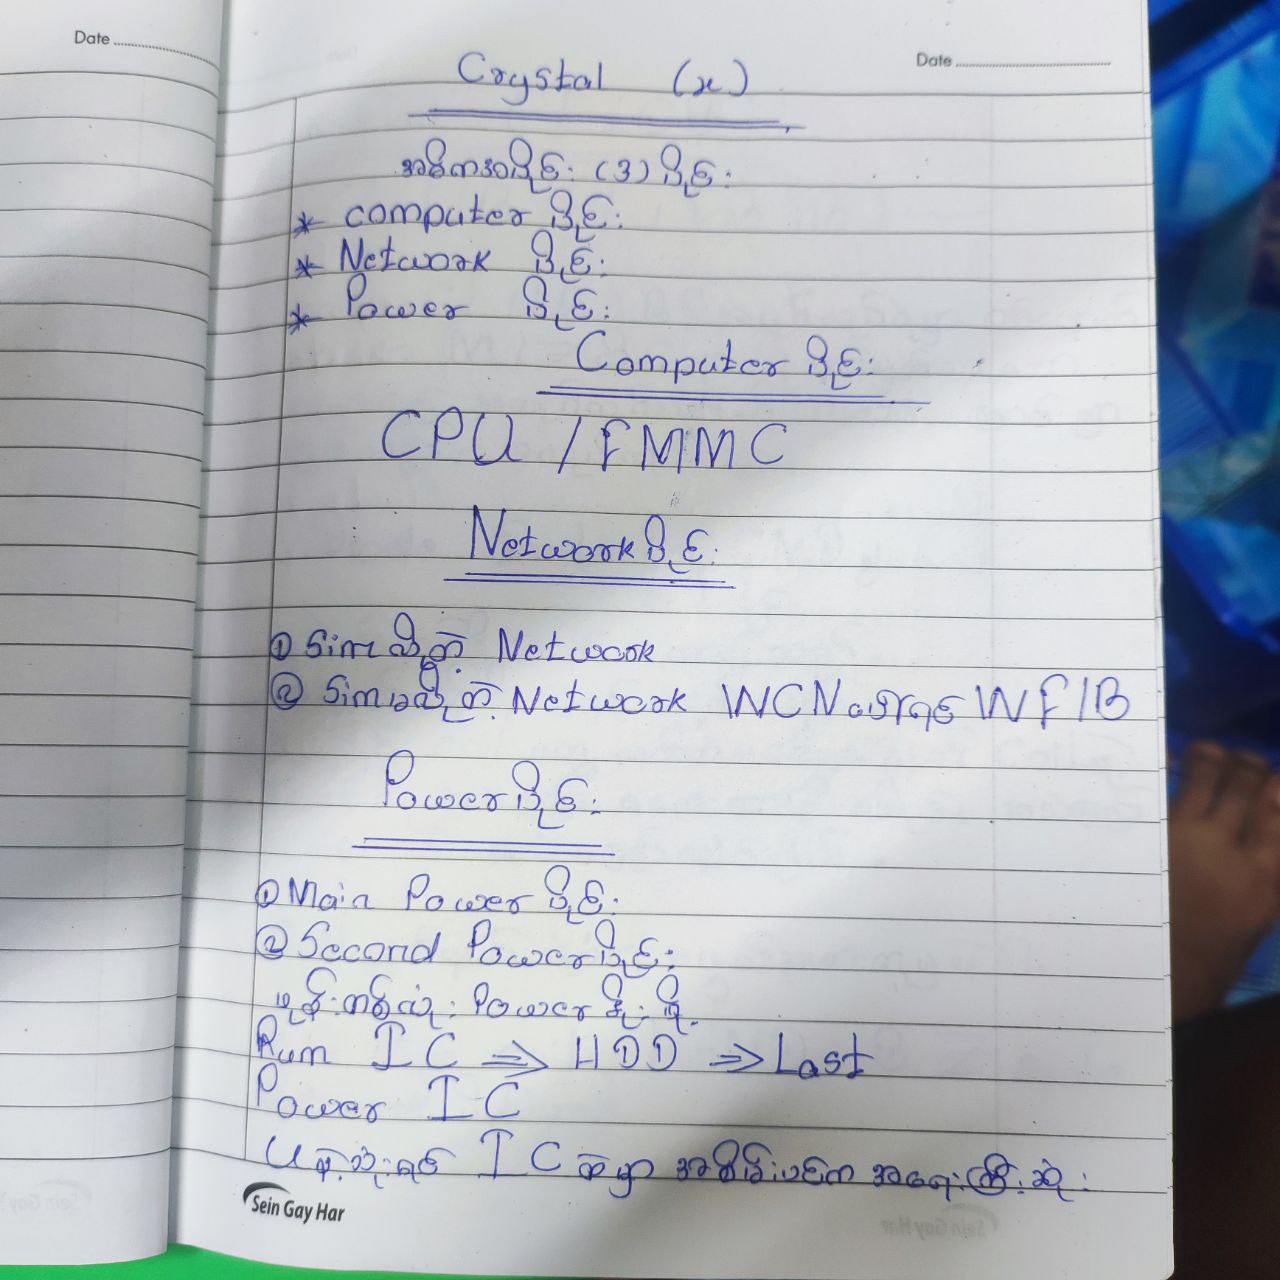 Date
Date
Crystal (x)
အဓိကအပိုင်း (၃) ပိုင်း
* computer ပိုင်း
* Network ပိုင်း
* Power ပိုင်း
Computer ပိုင်း
CPU / EMMC
Network ပိုင်း
① Sim သို့တဲ့ Network
② Sim မသို့တဲ့ Network WCN ခေါ်ရင် WF/B
Power ပိုင်း
① Main Power ပိုင်း
② Second Power ပိုင်း
ဖုန်းတစ်လုံး Power နိုးဖို့
Rum IC ⇒ HDD ⇒ Last
Power IC
U နဲ့သုံးရင် IC ဆိုမှာ အစိမ်းပင်က အရေးကြီးဆုံး
Sein Gay Har